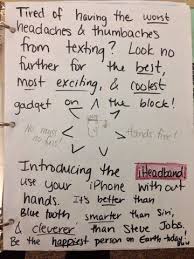 Tired of having the worst
headaches & thumbaches
from texting? Look no
further for the best,
most exciting, & coolest
gadget on the block!
No muss
no fuss!
Hands free!
Introducing the iHeadband
use your iPhone with out
hands. It's better than
Blue tooth smarter than Siri,
& cleverer than Steve Jobs.
Be the happiest person on Earth today!